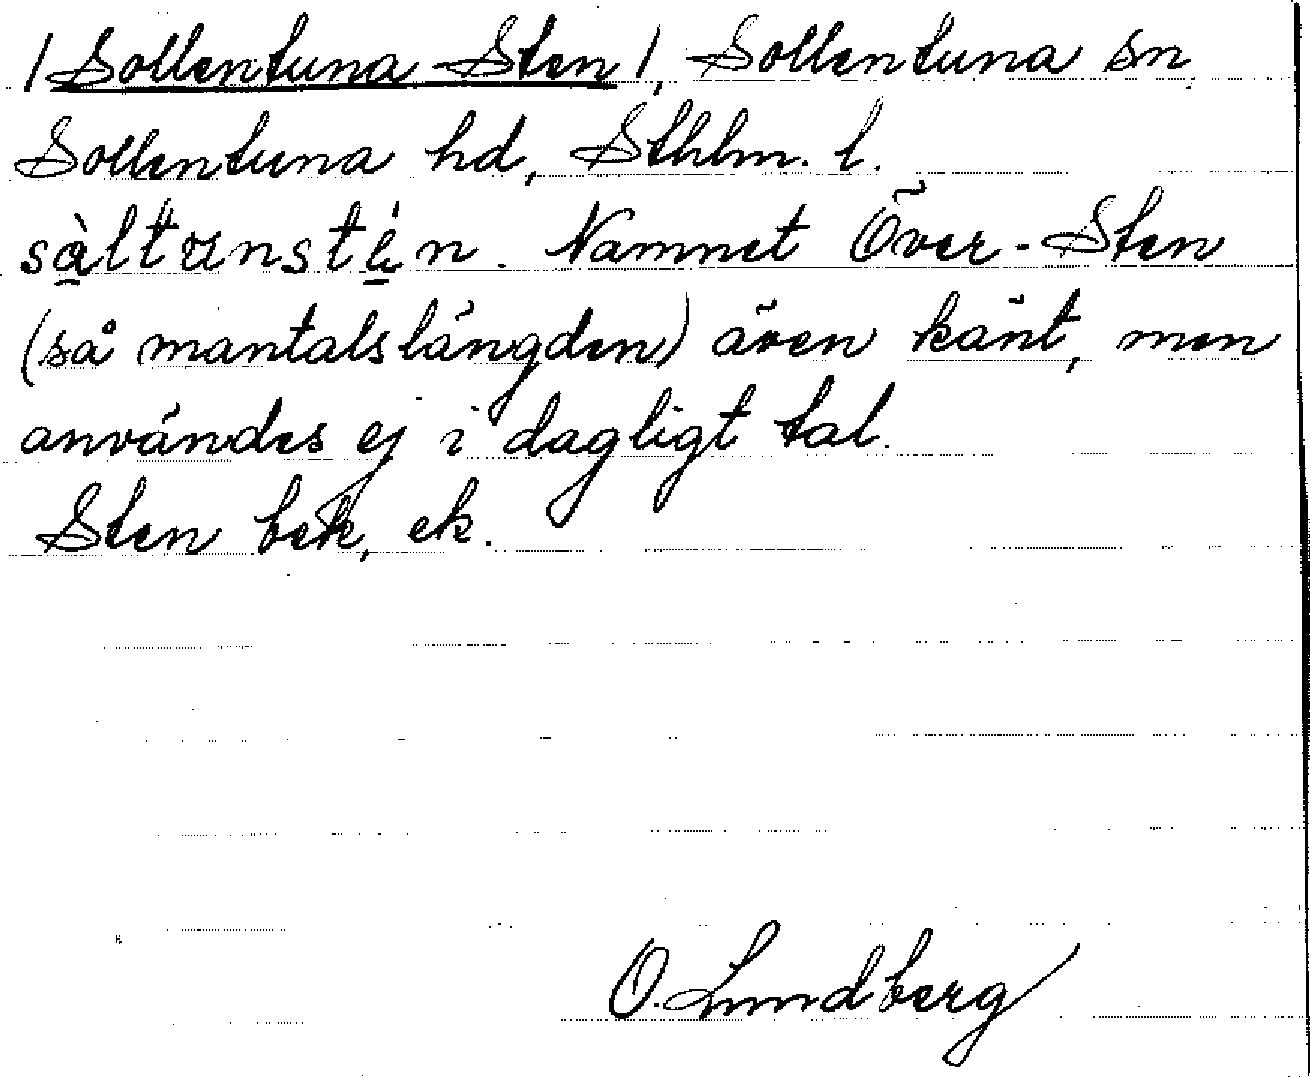 /Sollentuna-Sten/, Sollentuna sn.
Sollentuna hd, Sthlm. l.
sàltunstén. Namnet Över-Sten
(så mantalslängden) även känt, men
användes ej i dagligt tal.
Sten bek, ek.
O. Lundberg